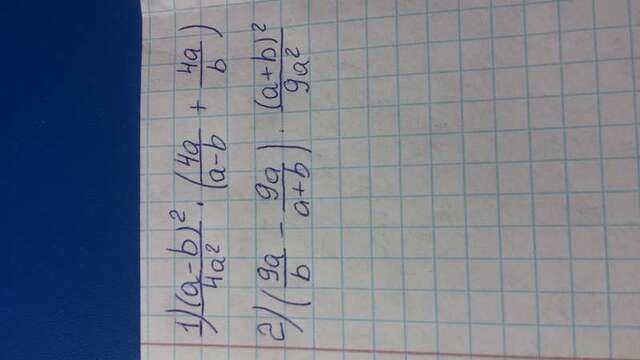 1) (a-b)²/4a² · (4a/(a-b) + 4a/b)
2) (9a/b - 9a/(a+b)) · (a+b)²/9a²